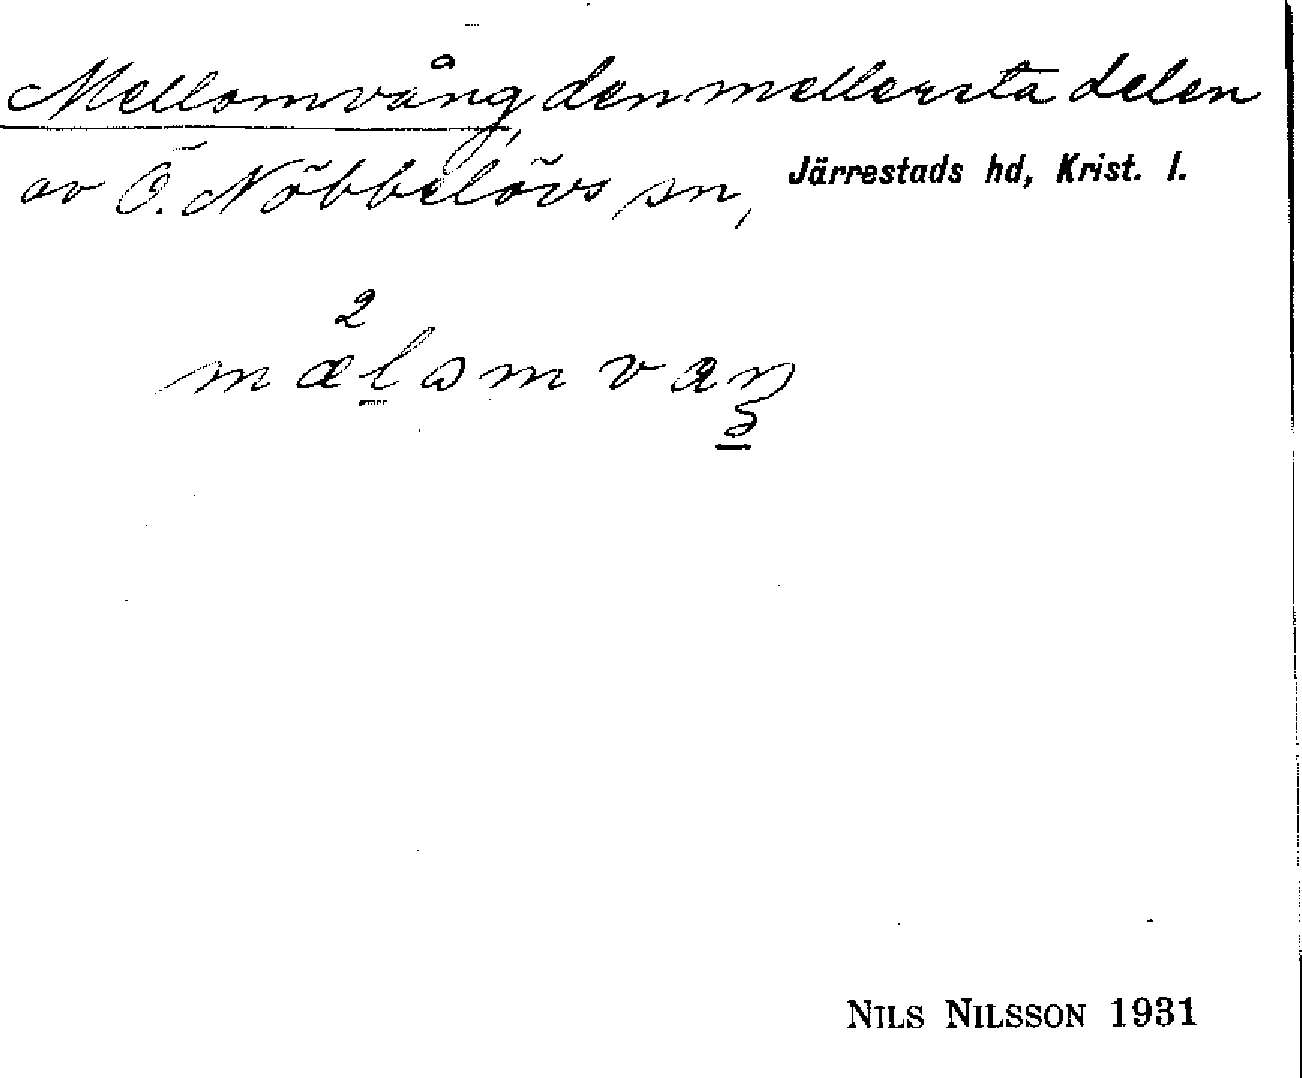 Mellomvång, den mellersta delen
av Ö. Nöbbelövs sn, Järrestads hd, Krist. l.
2
mælomvaŋ
NILS NILSSON 1931